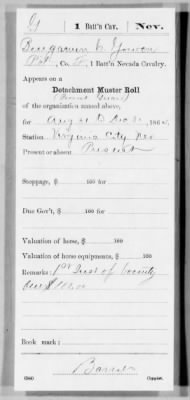 G | 1 Batt'n Cav. | Nev.
Benjamin
Pvt, Co. F, 1 Batt'n Nevada Cavalry.
Appears on a
Detachment Muster Roll
of the organization named above,
for Aug 31 to Dec 31, 186
Station Virginia City Nev
Present or absent Present
Stoppage, $ 100 for
Due Gov't, $ 100 for
Valuation of horse, $ 100
Valuation of horse equipments, $ 100
Remarks: 1st Inst of bounty
due $
Book mark:
(344) Copyist.